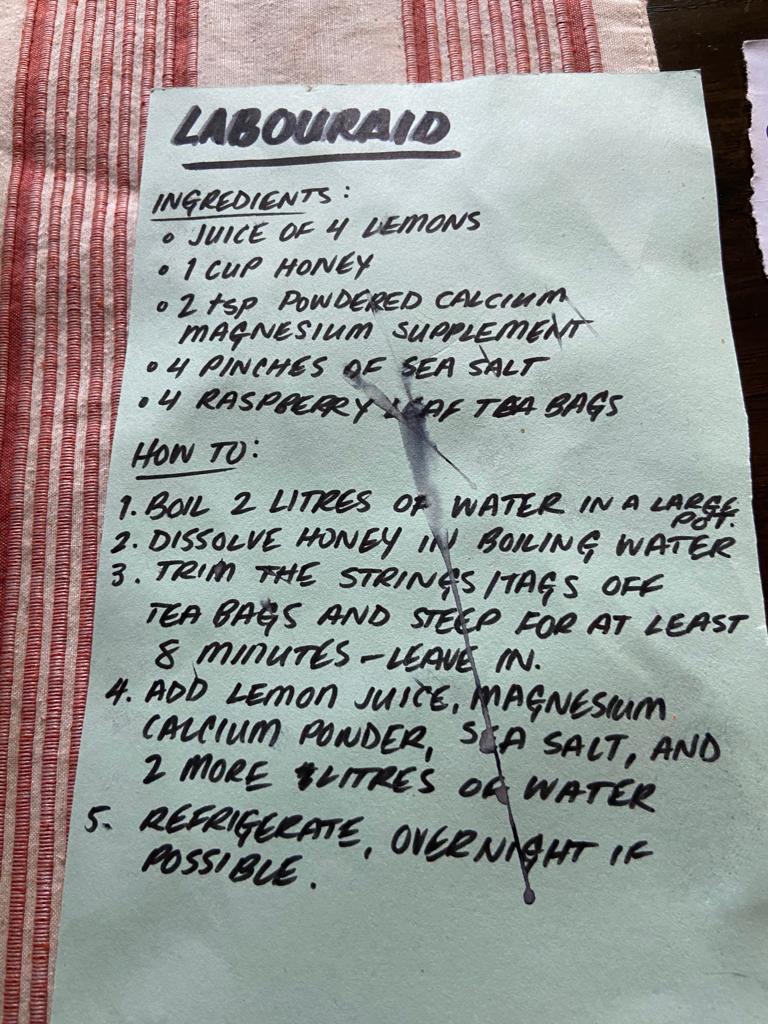 LABOURAID
INGREDIENTS:
• JUICE OF 4 LEMONS
• 1 CUP HONEY
• 2 tsp POWDERED CALCIUM
MAGNESIUM SUPPLEMENT
• 4 PINCHES OF SEA SALT
• 4 RASPBERRY LEAF TEA BAGS
HOW TO:
1. BOIL 2 LITRES OF WATER IN A LARGE
POT.
2. DISSOLVE HONEY IN BOILING WATER
3. TRIM THE STRINGS/TAGS OFF
TEA BAGS AND STEEP FOR AT LEAST
8 MINUTES - LEAVE IN.
4. ADD LEMON JUICE, MAGNESIUM
CALCIUM POWDER, SEA SALT, AND
2 MORE LITRES OF WATER
5. REFRIGERATE, OVERNIGHT IF
POSSIBLE.